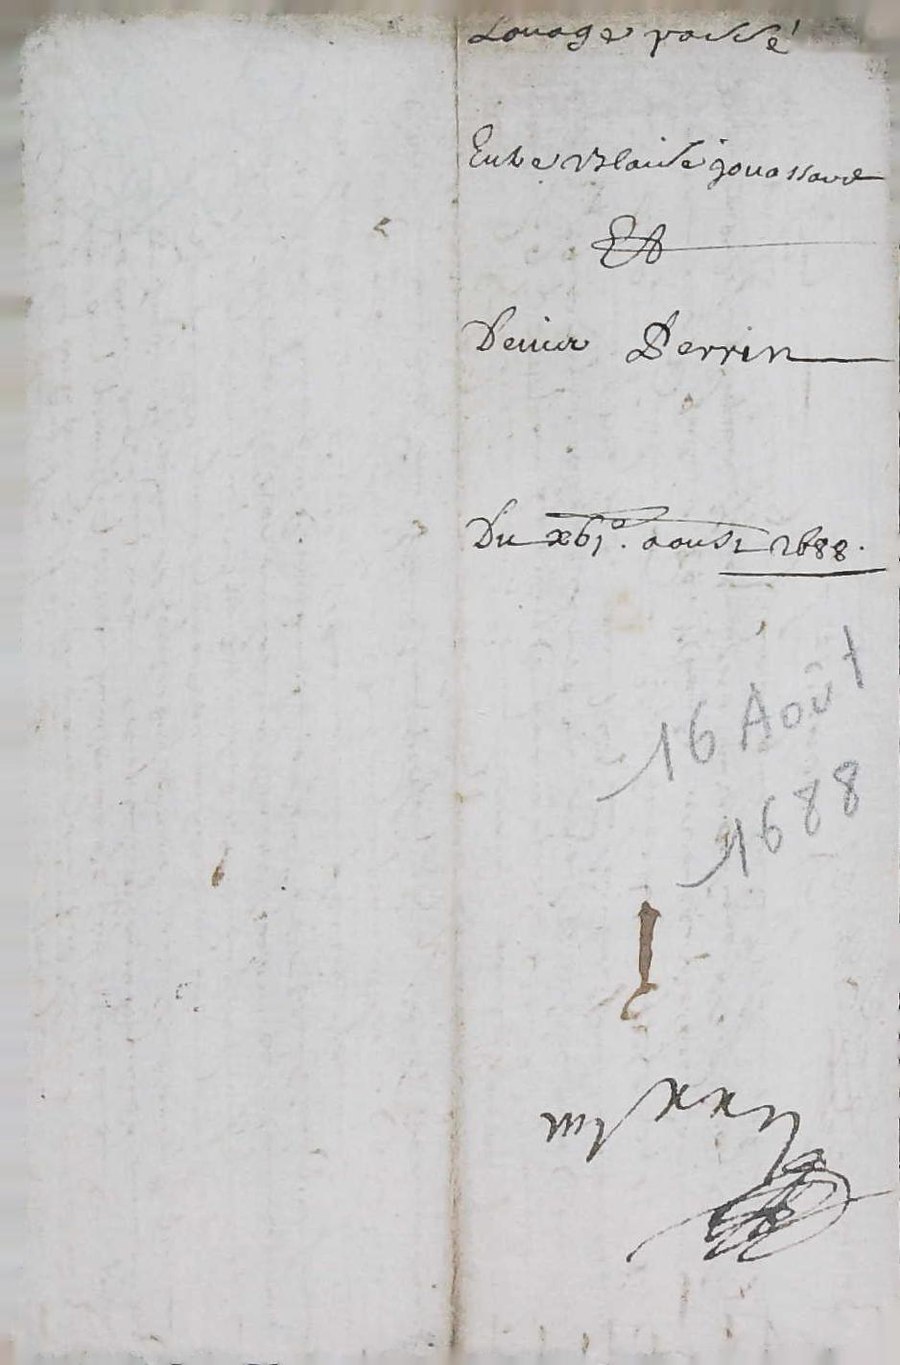 Louage passé
Entre Blaise jouassard
Et
Denier Perrin
Du xbje. aoust 1688.
16 Août
1688